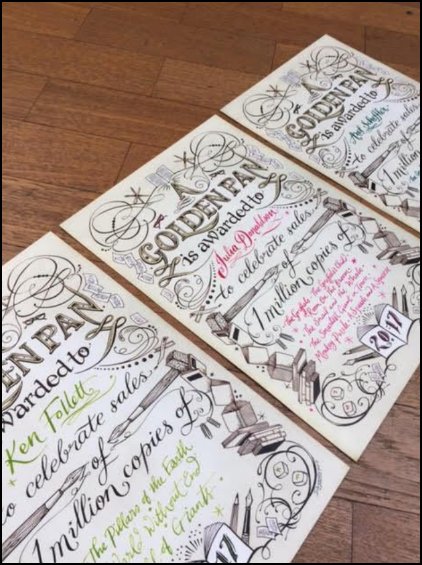 A
GOLDEN PAN
is awarded to
Axel Scheffler
to celebrate sales
of
1 million
A
GOLDEN PAN
is awarded to
Julia Donaldson
to celebrate sales
of
1 million copies of
The Gruffalo The Gruffalo's Child
Room on the Broom
The Snail and the Whale
The Smartest Giant in Town
Monkey Puzzle A Squash and a Squeeze
2017
DEN PAN
warded to
Ken Follett
to celebrate sales
of
1 million copies of
The Pillars of the Earth
World Without End
of Giants
17